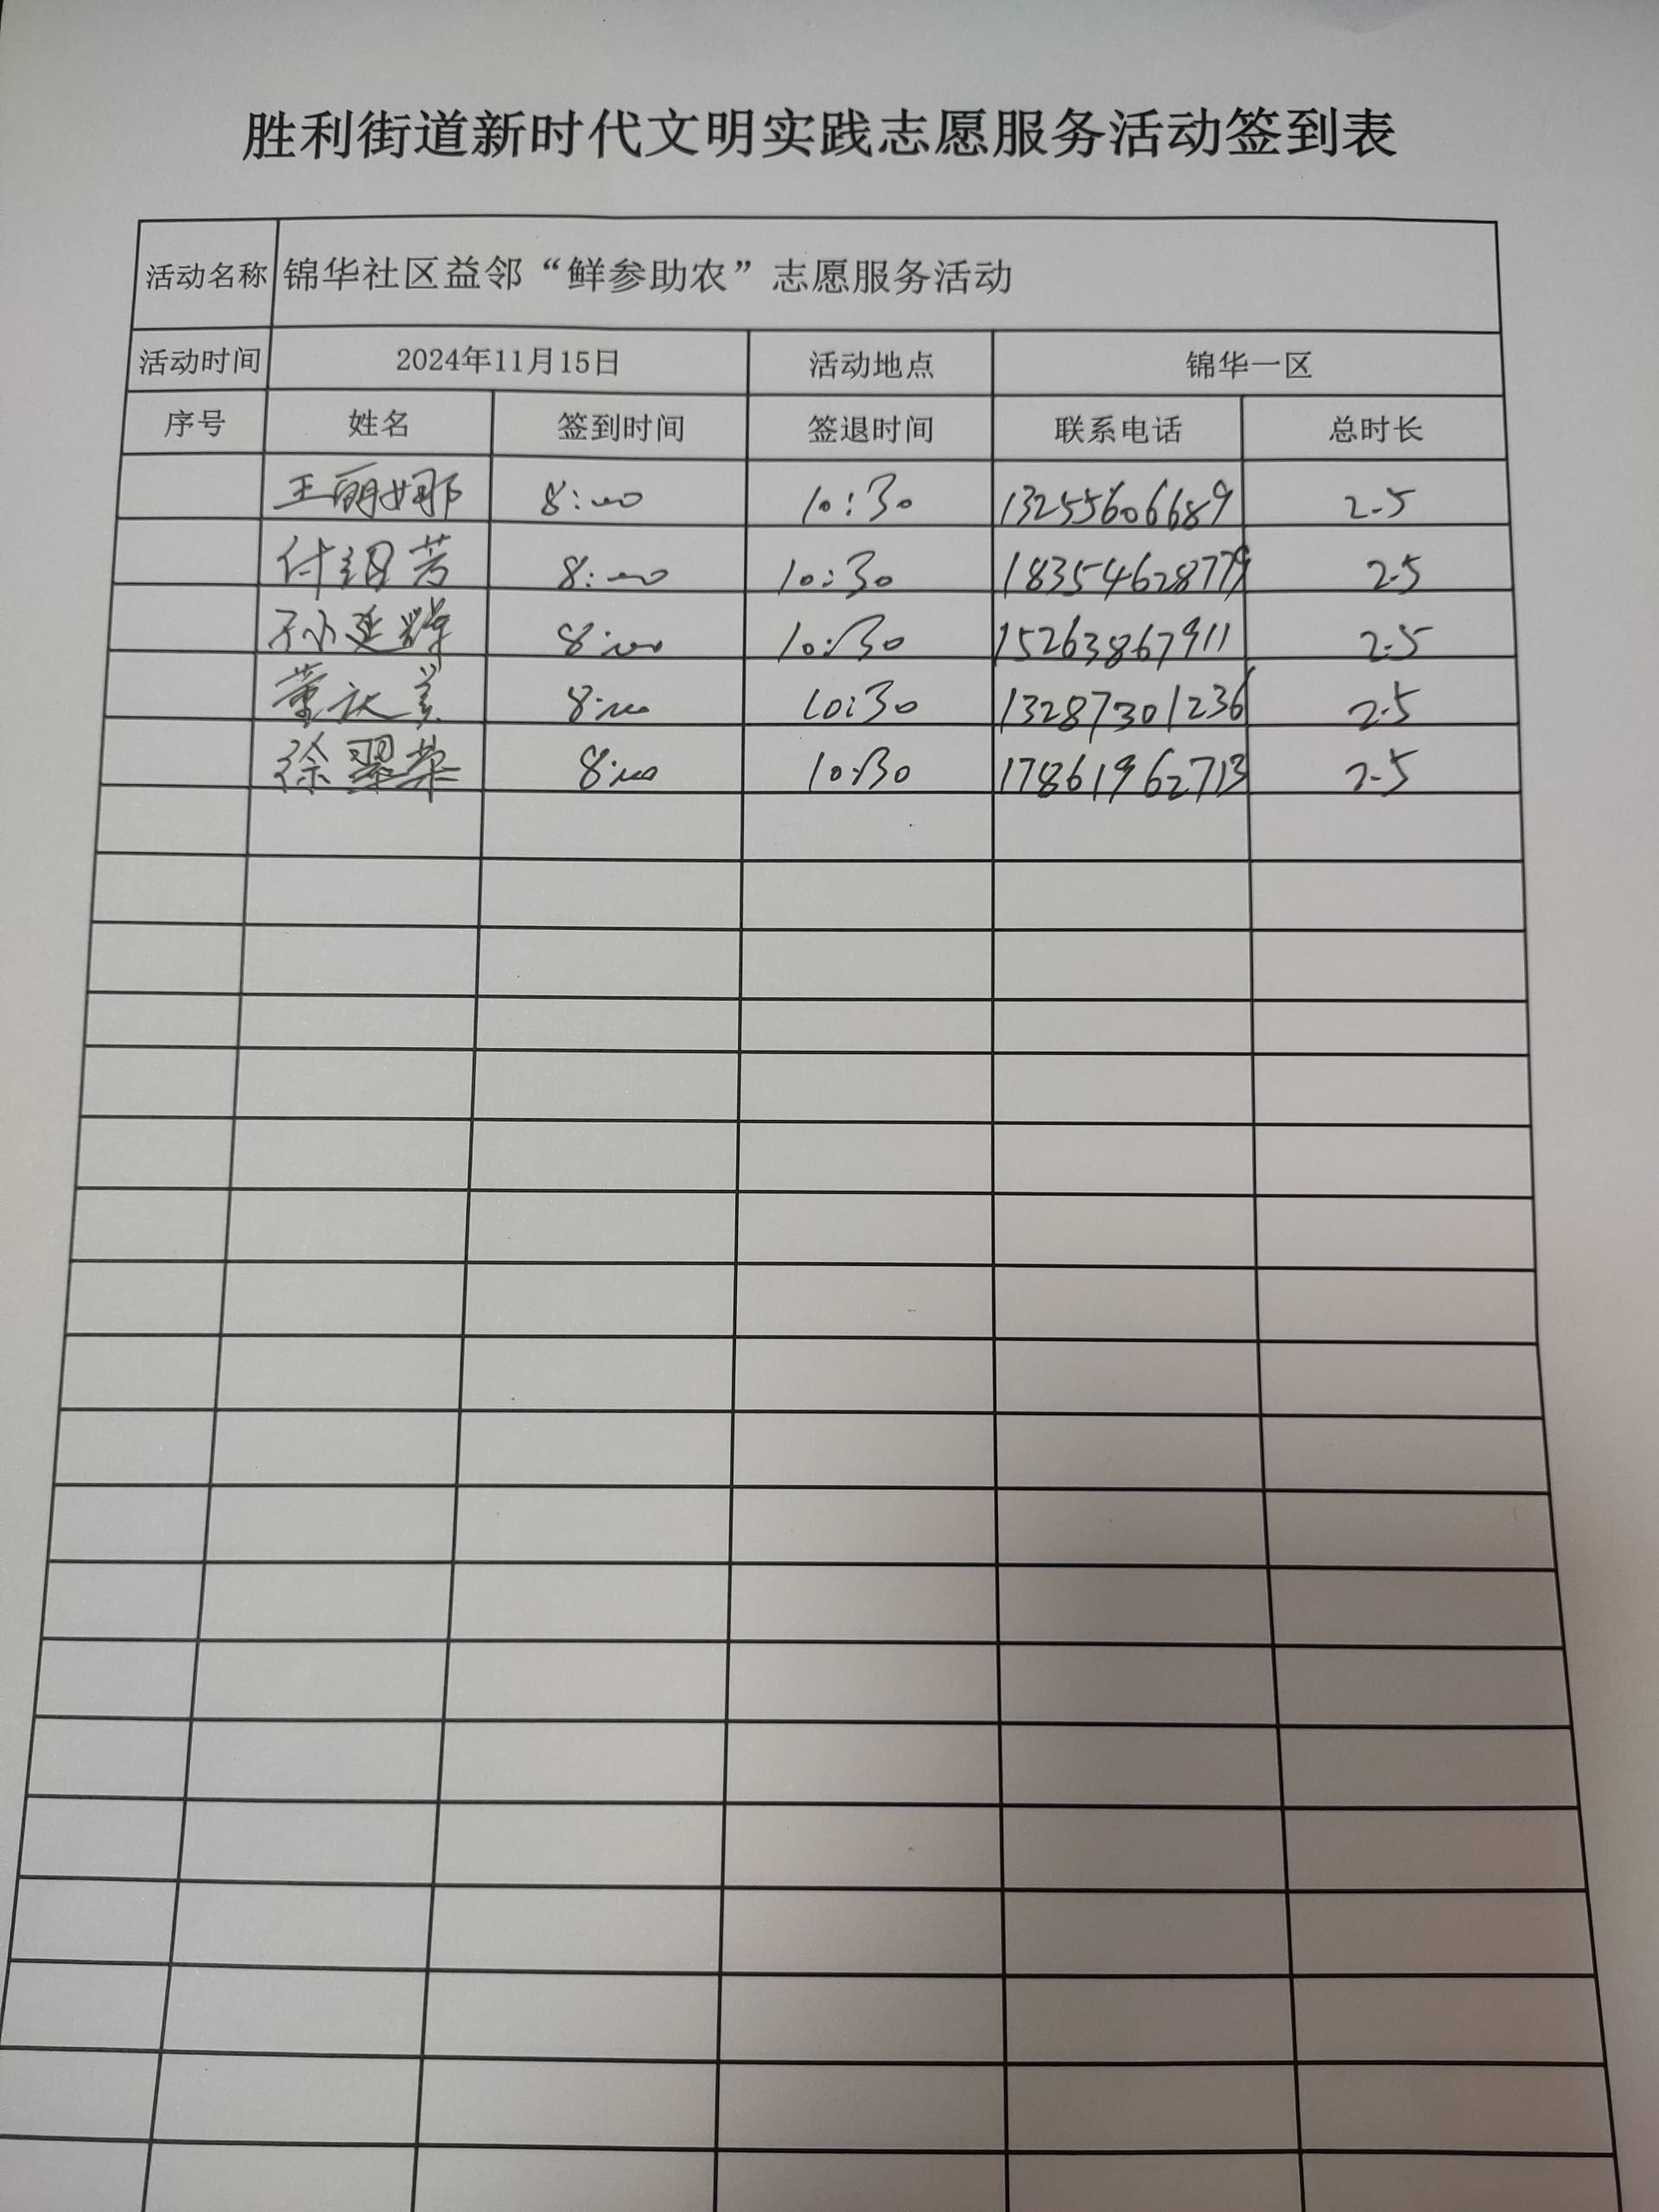 胜利街道新时代文明实践志愿服务活动签到表
活动名称 锦华社区益邻“鲜参助农”志愿服务活动
活动时间 2024年11月15日 活动地点 锦华一区
序号 姓名 签到时间 签退时间 联系电话 总时长
王丽娜 8:00 10:30 13255606689 2.5
付绍芳 8:00 10:30 18354628779 2.5
孙延辉 8:00 10:30 15263867911 2.5
董 8:00 10:30 13287301236 2.5
徐翠荣 8:00 10:30 17861962713 2.5